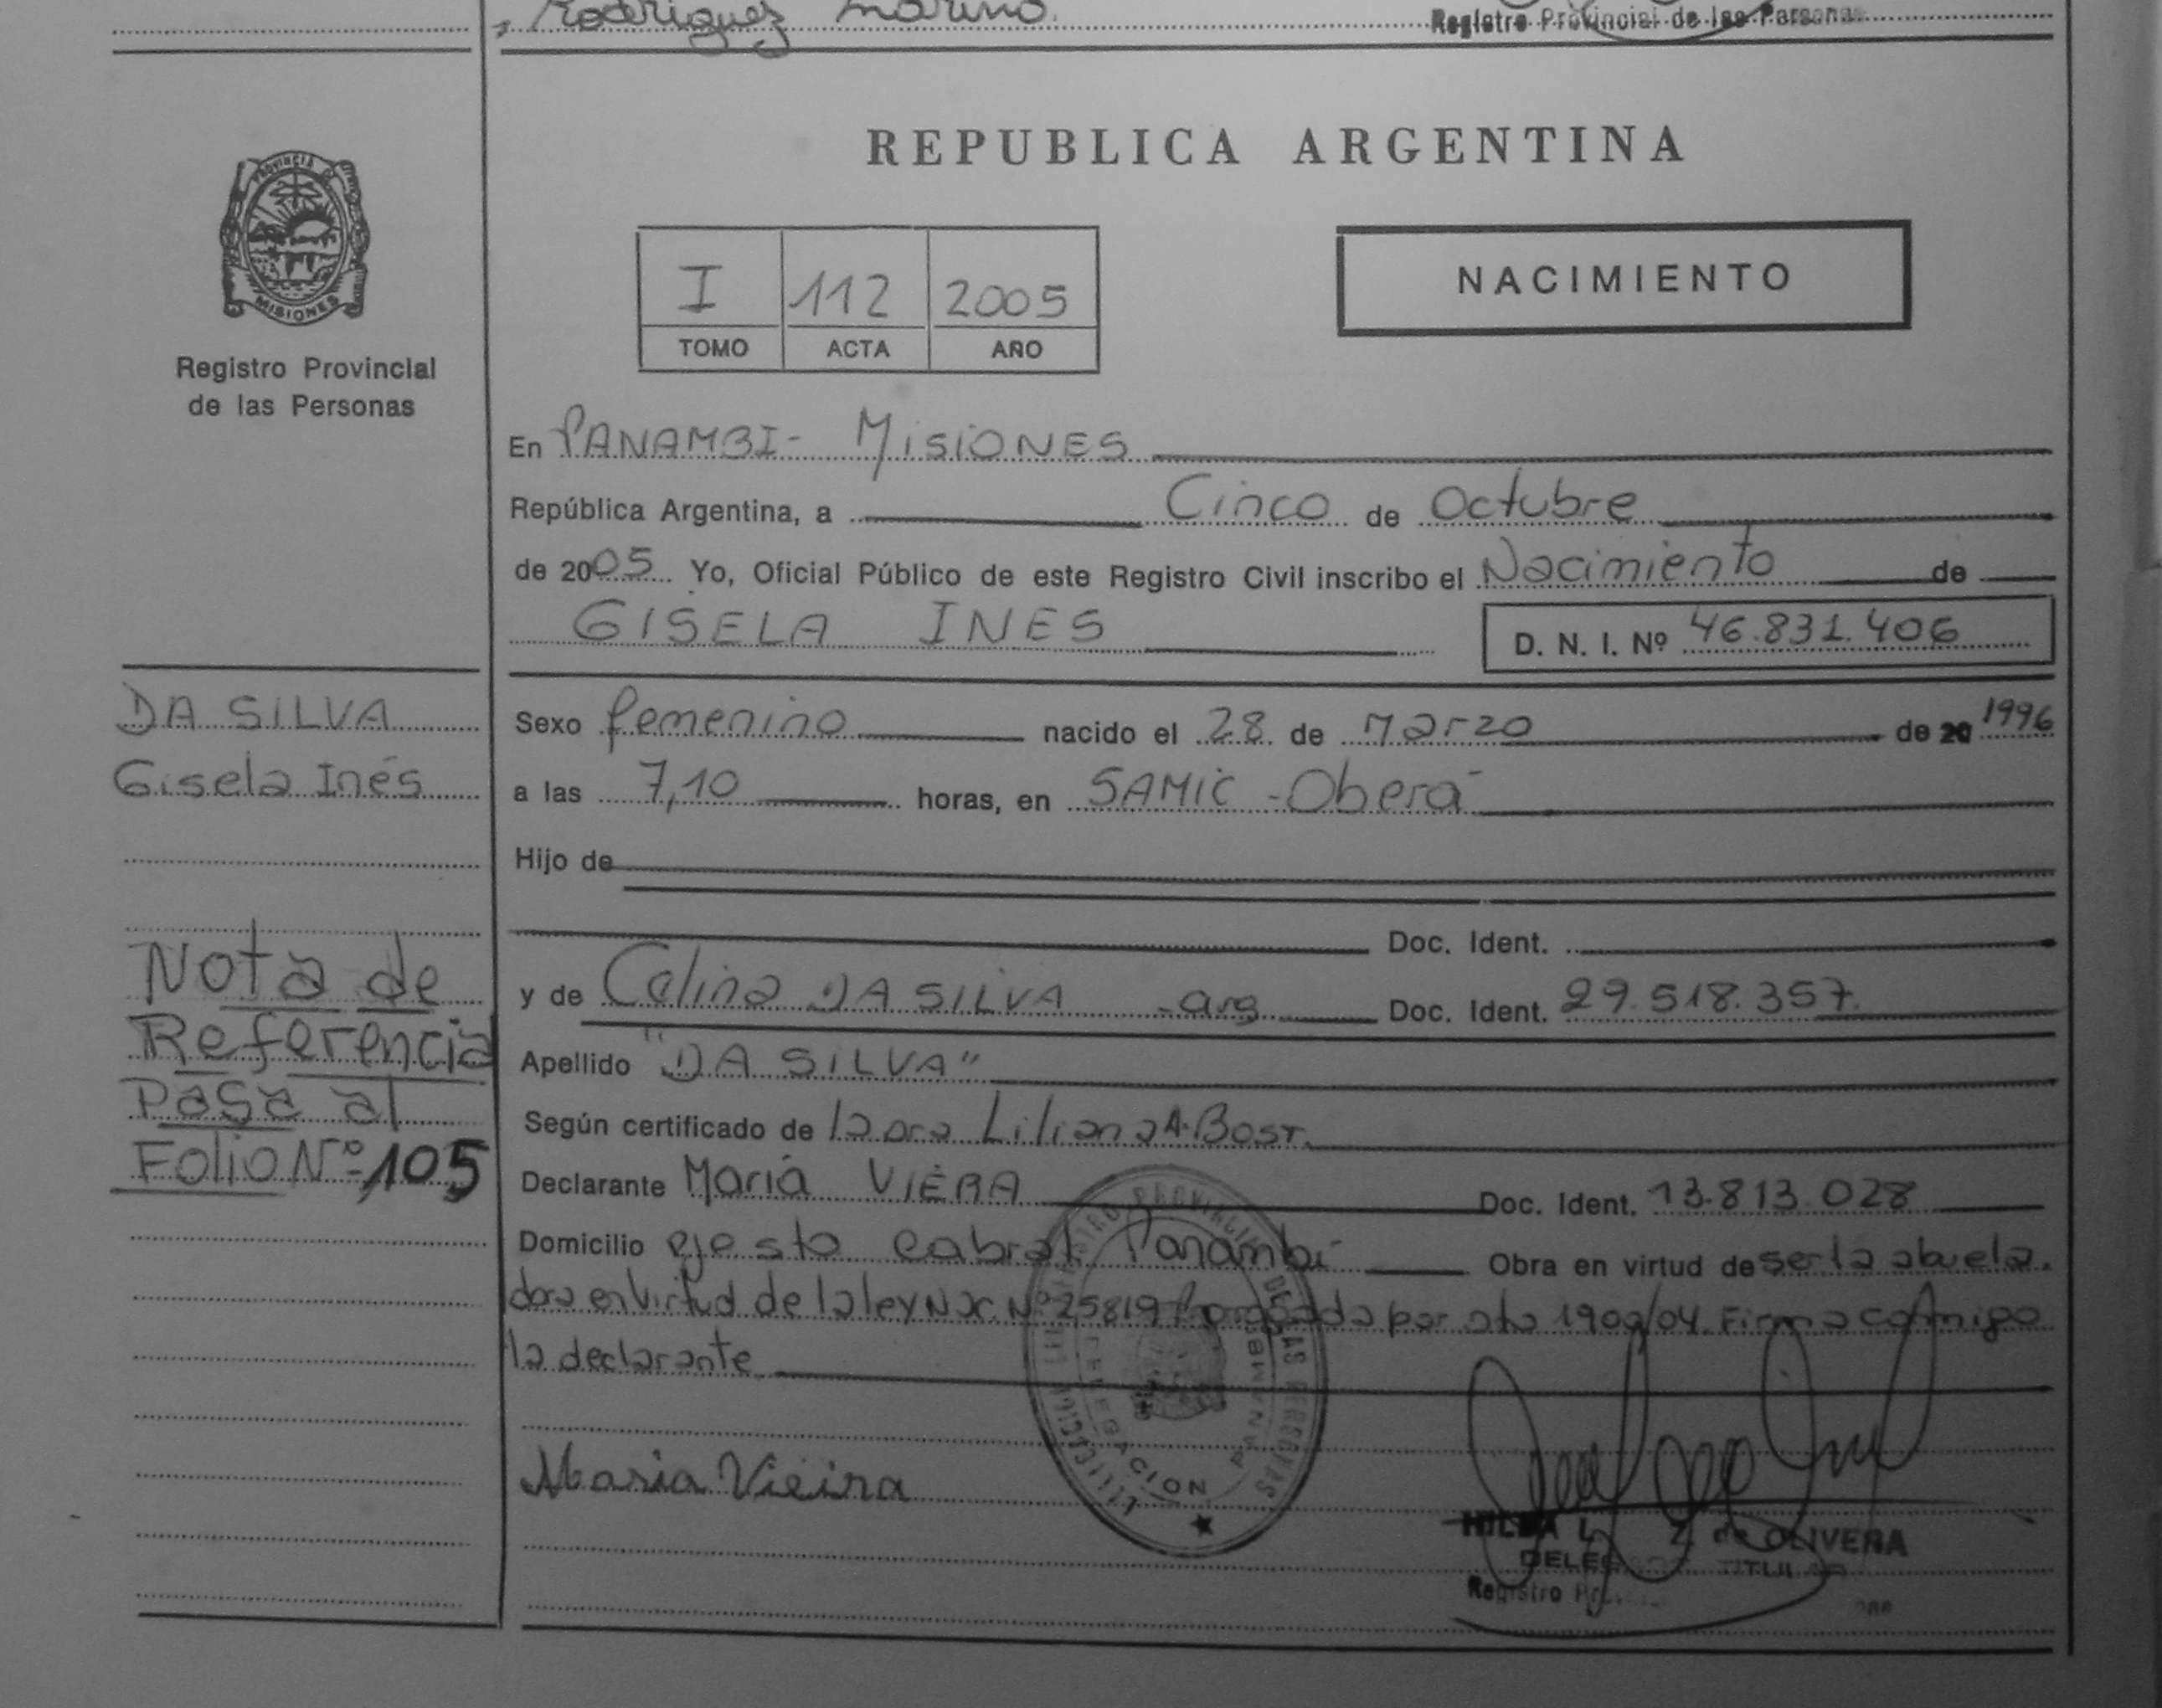 Rodriguez Marino.
Registro Provincial de las Personas
PROVINCIA DE
MISIONES
Registro Provincial
de las Personas
REPUBLICA ARGENTINA
I 112 2005
TOMO ACTA AÑO
NACIMIENTO
En PANAMBI- MISIONES
República Argentina, a Cinco de Octubre
de 2005 Yo, Oficial Público de este Registro Civil inscribo el Nacimiento de
GISELA INES
D. N. I. Nº 46.831.406
DA SILVA
Gisela Inés
Sexo femenino nacido el 28 de Marzo de 20 1996
a las 7,10 horas, en SAMIC - Oberá
Hijo de
Doc. Ident.
y de Celina DA SILVA - arg Doc. Ident. 29.518.357.
Apellido "DA SILVA"
Según certificado de la Dra Liliana A. Bost.
Declarante Maria VIERA Doc. Ident. 13.813.028
Domicilio Pje sto Cabral Panambi Obra en virtud de ser la abuela.
en virtud de la ley Nac. Nº 25819 por 1900/04 Firma conmigo
la declarante
Nota de
Referencia
Pasa al
Folio Nº 105
Maria Vieira
REGISTRO PROVINCIAL DE LAS PERSONAS
DELEGACION PANAMBI
HILDA L. Z. de OLIVERA
DELEGADO TITULAR
Registro